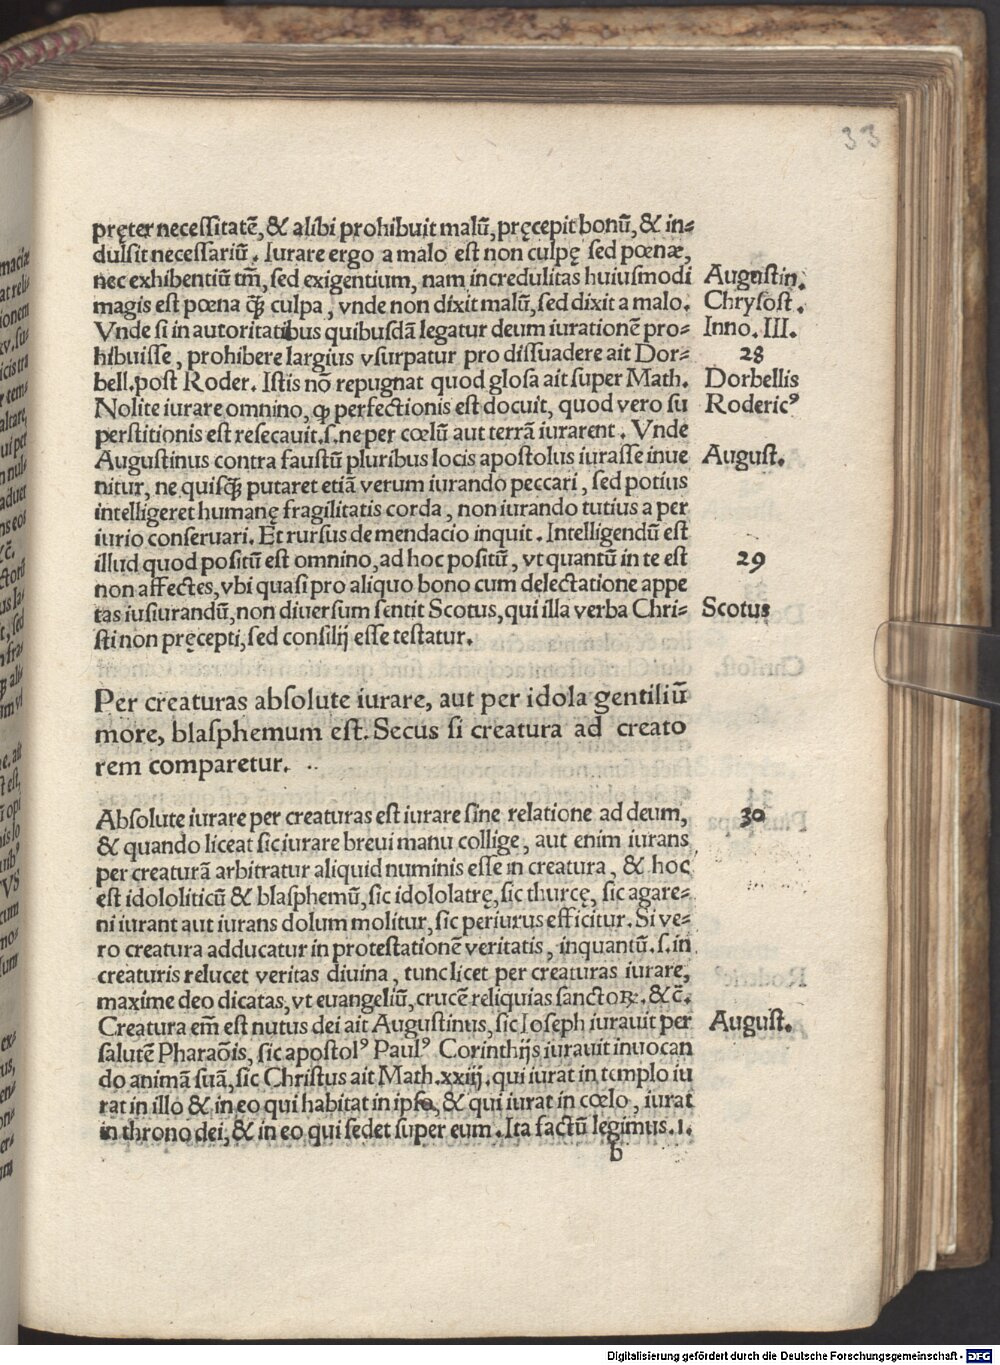 33
pręter necessitatē, & alibi prohibuit malū, pręcepit bonū, & in-
dulsit necessariū. Iurare ergo a malo est non culpę sed pœnæ,
nec exhibentiū tm̄, sed exigentium, nam incredulitas huiusmodi Augustin.
magis est pœna q̃ culpa, vnde non dixit malū, sed dixit a malo. Chrysost.
Vnde si in autoritatibus quibusdā legatur deum iurationē pro- Inno. III.
hibuisse, prohibere largius vsurpatur pro dissuadere ait Dor- 28
bell. post Roder. Istis nō repugnat quod glosa ait super Math. Dorbellis
Nolite iurare omnino, ꝙ perfectionis est docuit, quod vero su Rodericꝰ
perstitionis est resecauit. s. ne per cœlū aut terrā iurarent. Vnde
Augustinus contra faustū pluribus locis apostolus iurasse inue August.
nitur, ne quisq̃ putaret etiā verum iurando peccari, sed potius
intelligeret humanę fragilitatis corda, non iurando tutius a per
iurio conseruari. Et rursus de mendacio inquit. Intelligendū est
illud quod positū est omnino, ad hoc positū, vt quantū in te est 29
non affectes, vbi quasi pro aliquo bono cum delectatione appe
tas iusiurandū, non diuersum sentit Scotus, qui illa verba Chri- Scotus
sti non pręcepti, sed consilij esse testatur.
Per creaturas absolute iurare, aut per idola gentiliū
more, blasphemum est. Secus si creatura ad creato
rem comparetur.
Absolute iurare per creaturas est iurare sine relatione ad deum, 30
& quando liceat sic iurare breui manu collige, aut enim iurans
per creaturā arbitratur aliquid numinis esse in creatura, & hoc
est idololiticū & blasphemū, sic idololatrę, sic thurcę, sic agare-
ni iurant aut iurans dolum molitur, sic periurus efficitur. Si ve-
ro creatura adducatur in protestationē veritatis, inquantū. s. in
creaturis relucet veritas diuina, tunc licet per creaturas iurare,
maxime deo dicatas, vt euangeliū, crucē reliquias sanctoꝝ. &c̄.
Creatura em̄ est nutus dei ait Augustinus, sic Ioseph iurauit per August.
salutē Pharaōis, sic apostolꝰ Paulꝰ Corinthijs iurauit inuocan
do animā suā, sic Christus ait Math. xxiij. qui iurat in templo iu
rat in illo & in eo qui habitat in ipso, & qui iurat in cœlo, iurat
in throno dei, & in eo qui sedet super eum. Ita factū legimus. 1.
b
Digitalisierung gefördert durch die Deutsche Forschungsgemeinschaft - DFG